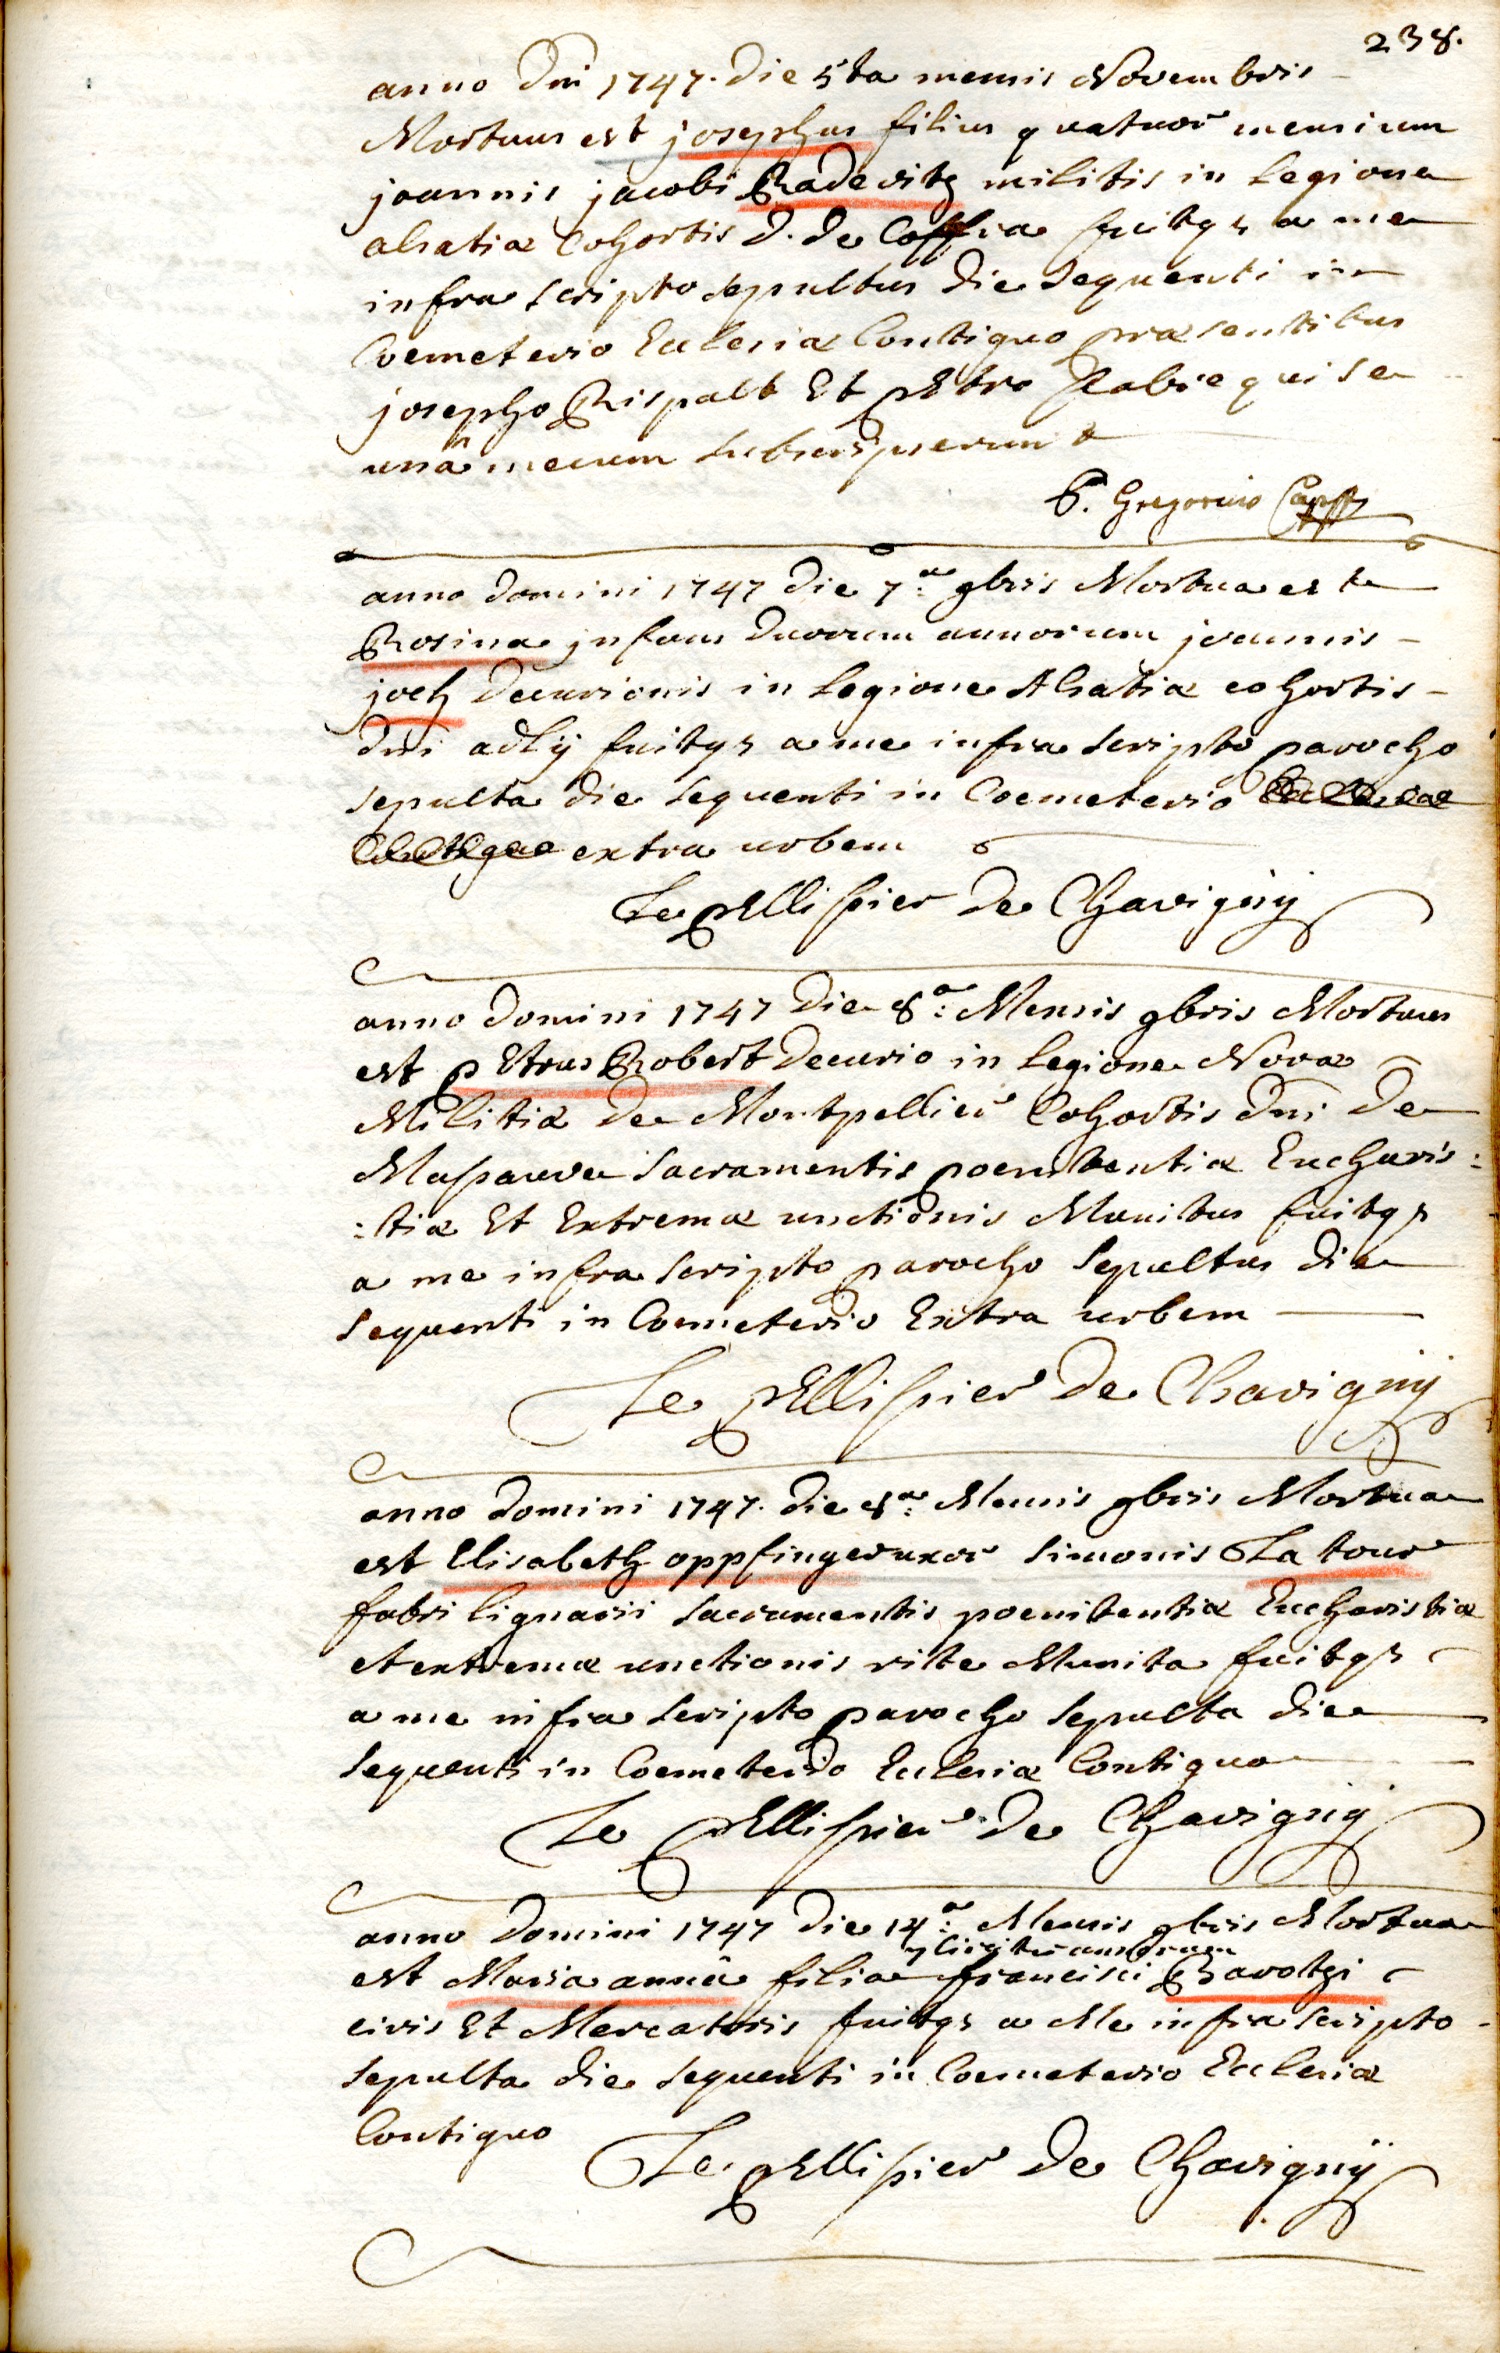 238.
anno Dni 1747. Die 5ta mensis Novembris
Mortuus est josephus filius quatuor mensium
joannis jacobi Radevitz militis in Legione
alsatiæ Cohortis D. de fuitqz a me
infra scripto sepultus Die sequenti in
Coemeterio Ecclesiæ Contiguo præsentibus
josepho Rispalt Et pEtro qui se
unâ mecum subscripserunt
P. Gregorius
anno Domini 1747 Die 7a: 9bris Mortua est
Rosina jnfans Duorum annorum joannis
joch Decurionis in Legione Alsatiæ cohortis
Dni adly fuitqz a me infra scripto parocho
sepulta die sequenti in Coemeterio Ecclesiæ
Contiguo extra urbem
Le pEllissier De Chavigny
anno Domini 1747 Die 8a: Mensis 9bris Mortuus
est pEtrus Robert Decurio in Legione Novæ
Militiæ De Montpellier Cohortis Dni De
Sacramentis poenitentiæ Eucharis:
:tiæ Et Extremæ unctionis Munitus fuitqz
a me infra scripto parocho Sepultus Die
sequenti in Coemeterio Extra urbem
Le pEllissier De Chavigny
anno Domini 1747. Die 8a: Mensis 9bris Mortua
est Elisabeth oppfinger uxor simonis La tour
fabri lignarii sacramentis poenitentiæ Eucharistiæ
et extremæ unctionis rite Munita fuitqz
a me infra scripto parocho sepulta Die
sequenti in Coemeterio Ecclesiæ Contiguo
Le pEllissier De Chavigny
anno Domini 1747 Die 14a: Mensis 9bris Mortua
est Maria annâ filia francisci
civis Et Mercatoris fuitqz a Me infra scripto
sepulta die sequenti in Coemeterio Ecclesiæ
Contiguo
Le pEllissier De Chavigny